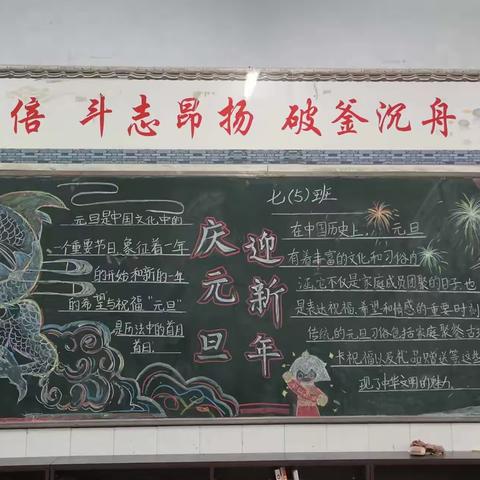 倍 斗志昂扬 破釜沉舟
七(5)班
庆元旦
迎新年
元旦是中国文化中的
一个重要节日,象征着一年
的开始和新的一年
的希望与祝福“元旦”
是历法中的首月
首日.
在中国历史上, 元旦
有着丰富的文化和习俗内
涵,它不仅是家庭成员团聚的日子也
是表达祝福,希望和情感的重要时刻
传统的元旦习俗包括家庭聚餐
卡祝福以及礼品赠送等这些
现了中华文明的魅力.